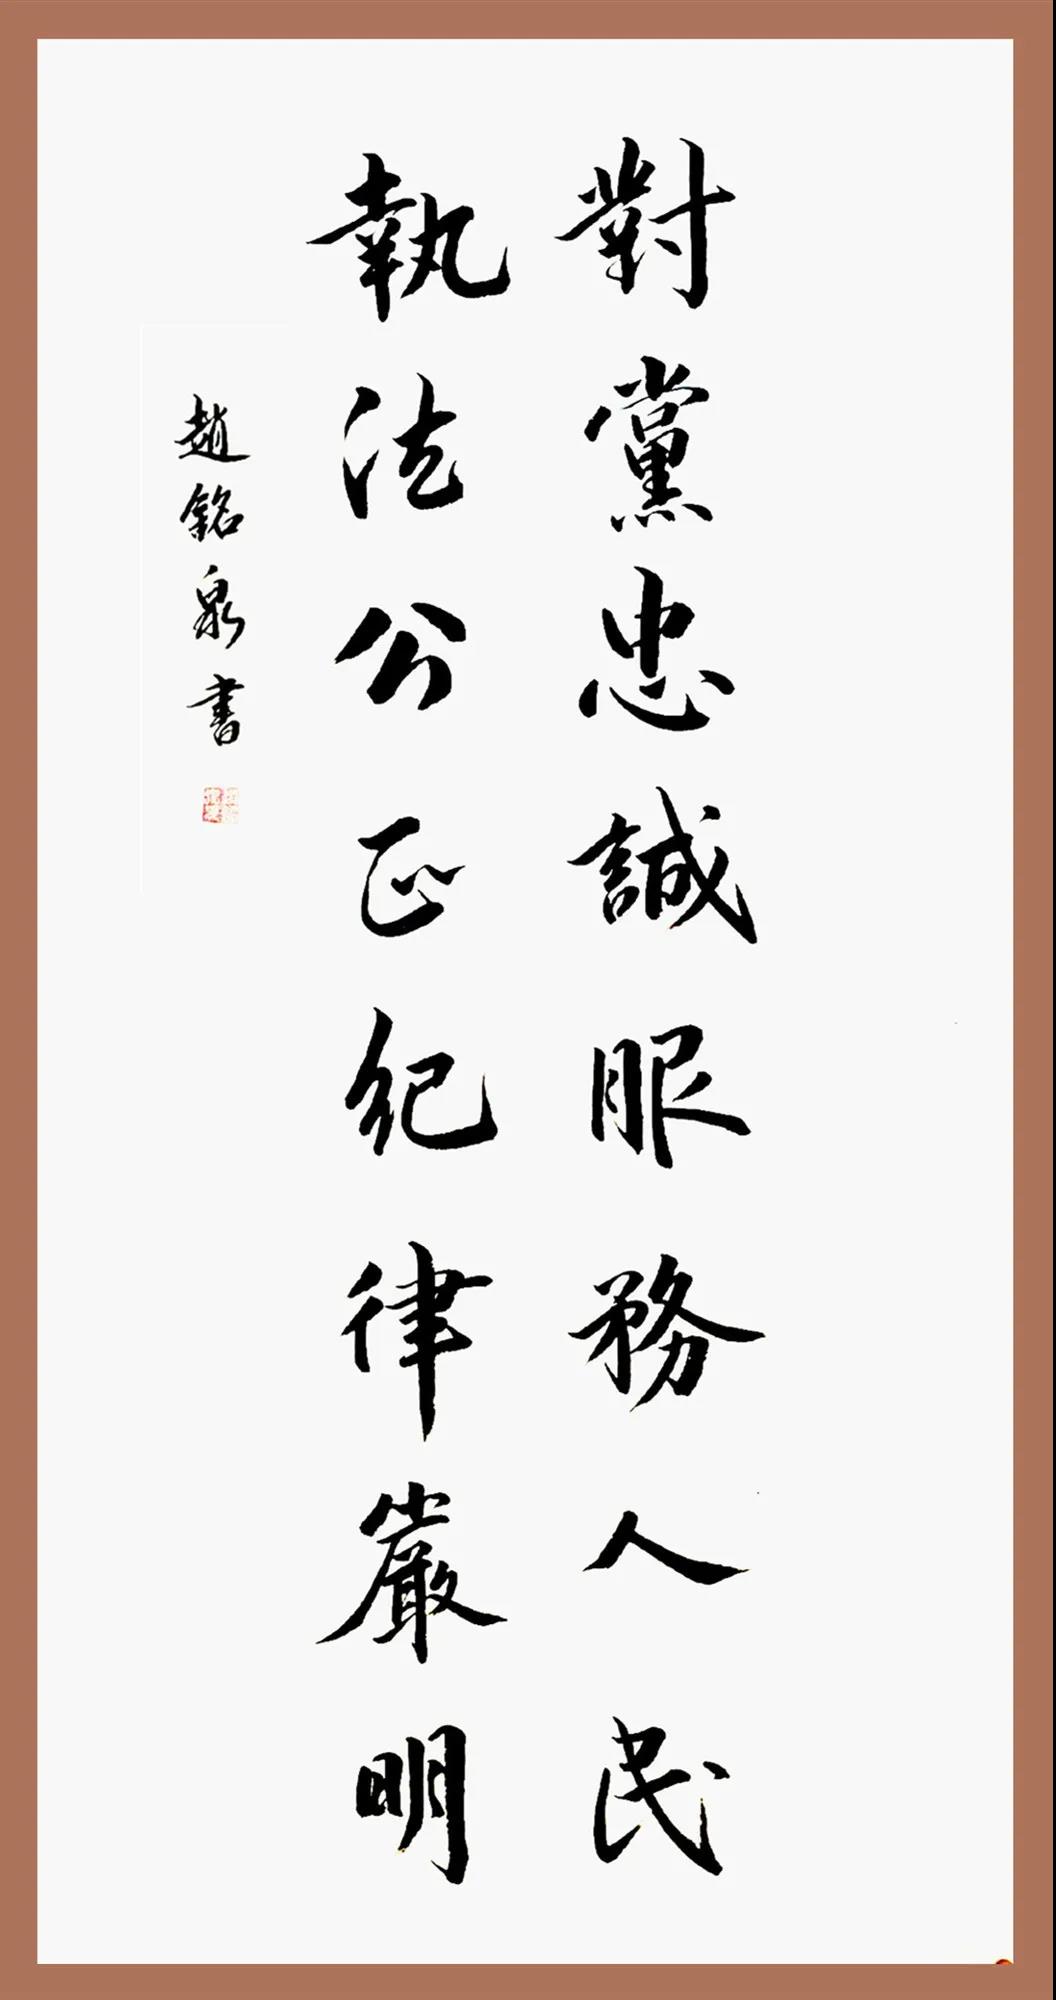 對黨忠誠服務人民
執法公正紀律嚴明
趙銘泉書